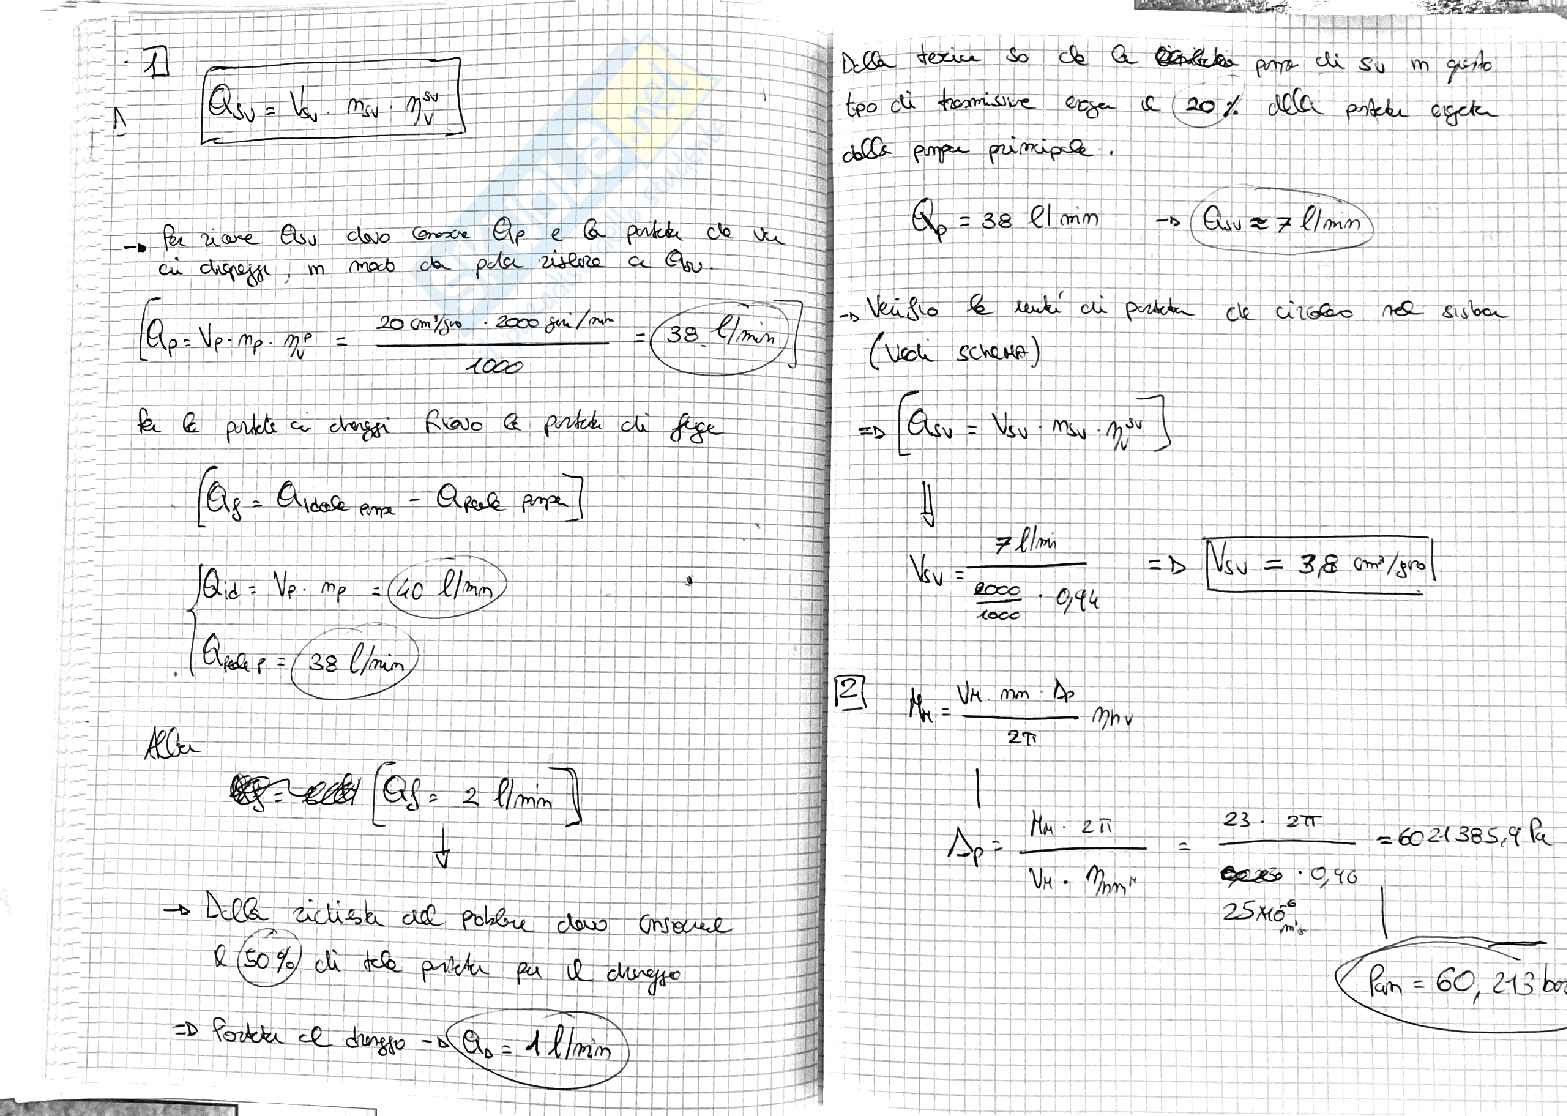 1
Qsv = Vsv · nsv · ηv^sv
→ Per Qsv devo Qp e la portata che va
ai drenaggi, in modo da poter risalire a Qsv.
[Qp = Vp · np · ηv^p = 20 cm³/giro · 2000 giri/min / 1000 = 38 l/min]
Per le portate ai drenaggi trovo la portata di fuga
[Qf = Qideale pompa - Qreale pompa]
Qid = Vp · np = 40 l/min
Qreale p = 38 l/min
Allora
[Qf = 2 l/min]
→ Dalla richiesta del problema devo
il 50% di tale portata per il drenaggio
⇒ Portata al drenaggio → QD = 1 l/min
Dalla teoria so che la pompa di sv in questo
tipo di trasmissione eroga il 20% della portata
dalla pompa principale.
Qp = 38 l/min → Qsv ≈ 7 l/min
→ Verifico le unità di portata che circolano nel sistema
(Vedi SCHEMA)
⇒ [Qsv = Vsv · nsv · ηv^sv]
Vsv = 7 l/min / (2000/1000 · 0,94) ⇒ Vsv = 3,8 cm³/giro
2
MM = VM · nm · Δp / 2π ηhv
Δp = MM · 2π / VM · ηhm^M = 23 · 2π / 25×10^-6 m³ · 0,96 = 6021385,9 Pa
= 60,213 bar